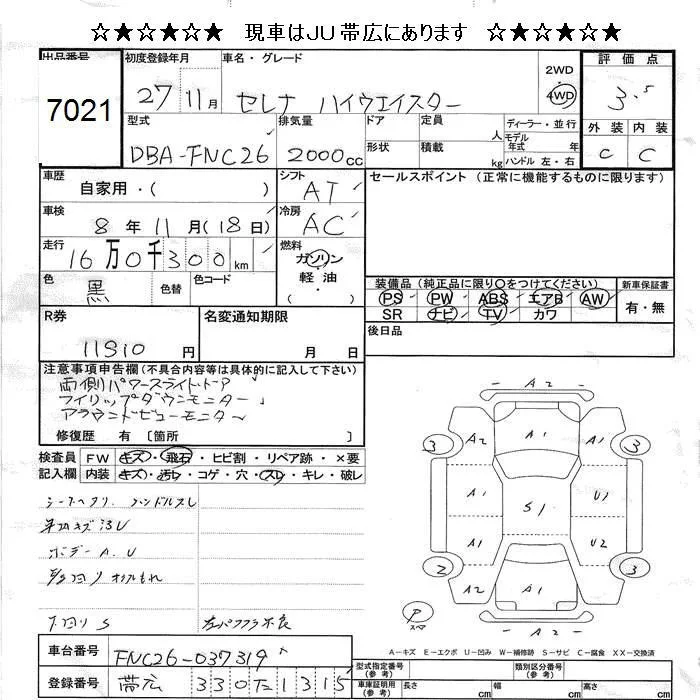 ☆★☆★☆★ 現車はJU帯広にあります ☆★☆★☆★
出品番号 7021
初度登録年月 27 11月
車名・グレード セレナ ハイウエイスター
2WD
4WD
評価点 3.5
外装 内装
C C
型式 DBA-FNC26
排気量 2000cc
ドア 形状
定員 人
積載 kg
ディーラー・並行
モデル年式 年式
ハンドル 左・右
車歴 自家用・( )
シフト AT
セールスポイント (正常に機能するものに限ります)
車検 8年11月(18日)
冷房 AC
走行 16万0千300km
燃料 ガソリン
軽油
( ・ )
色 黒 色替 色コード
装備品(純正品に限り○をつけてください)
PS PW ABS エアB AW
SR ナビ TV カワ
新車保証書
有・無
R券 11910円
名変通知期限 月 日
後日品
注意事項申告欄(不具合内容等は具体的に記入して下さい)
両側パワースライドドア
フィリップダウンモニター
アラウンドビューモニター
修復歴 有〔箇所 〕
検査員記入欄
FW キズ・飛石・ヒビ割・リペア跡・×要
内装 キズ・汚レ・コゲ・穴・スレ・キレ・破レ
シートヘタリ ハンドルスレ
ボデー A.U
下回りS
A2
3 A2 A1 3
A1 S1 U1
A1 U2
2 A2 A1 3
A2
P スペア
A-キズ E-エクボ U-凹み W-補修跡 S-サビ C-腐食 XX-交換済
車台番号 FNC26-037319
登録番号 帯広 330 た 1315
型式指定番号(参考)
類別区分番号(参考)
車庫証明用(参考) 長さ cm 幅 cm 高さ cm